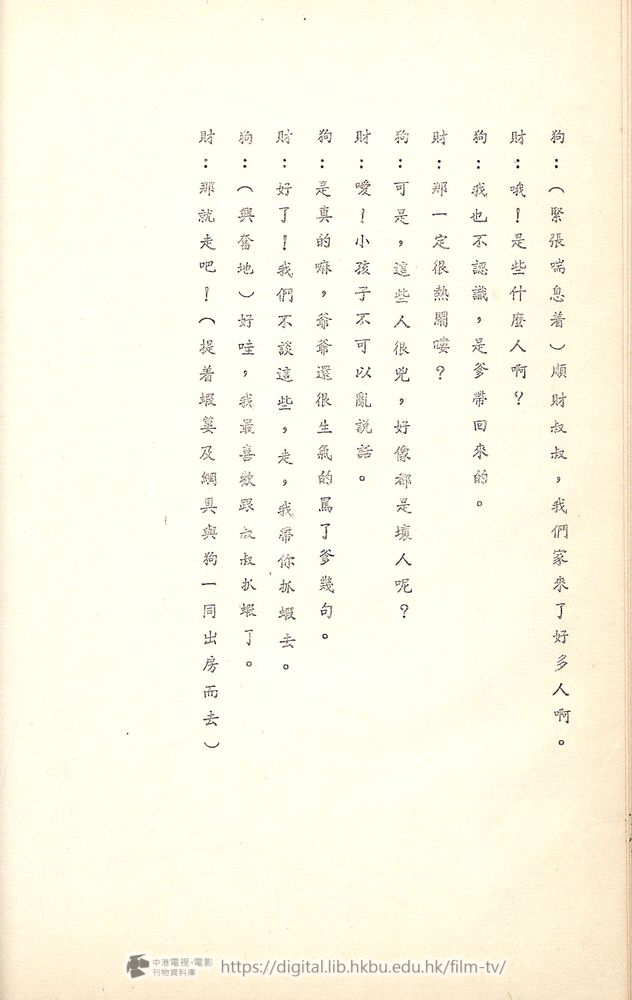 狗：（緊張喘息着）順財叔叔，我們家來了好多人啊。
財：哦！是些什麼人啊？
狗：我也不認識，是爹帶回來的。
財：那一定很熱鬧嘍？
狗：可是，這些人很兇，好像都是壞人呢？
財：噯！小孩子不可以亂説話。
狗：是真的嘛，爺爺還很生氣的罵了爹幾句。
財：好了！我們不談這些，走，我帶你抓蝦去。
狗：（興奮地）好哇，我最喜歡跟叔叔抓蝦了。
財：那就走吧！（提着蝦簍及網具與狗一同出房而去）
中港電視·電影
刊物資料庫
https://digital.lib.hkbu.edu.hk/film-tv/